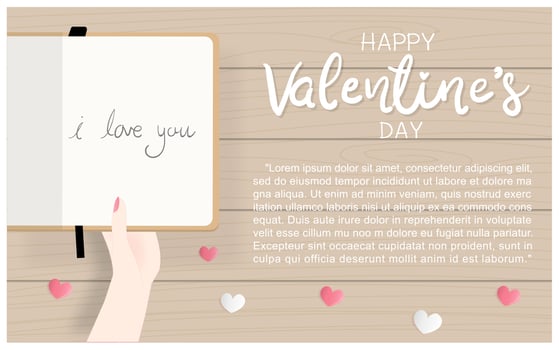 i love you
HAPPY
Valentine's
DAY
"Lorem ipsum dolor sit amet, consectetur adipiscing elit, sed do eiusmod tempor incididunt ut labore et dolore magna aliqua. Ut enim ad minim veniam, quis nostrud exercitation ullamco laboris nisi ut aliquip ex ea commodo consequat. Duis aute irure dolor in reprehenderit in voluptate velit esse cillum dolore eu fugiat nulla pariatur. Excepteur sint occaecat cupidatat non proident, sunt in culpa qui officia deserunt mollit anim id est laborum."